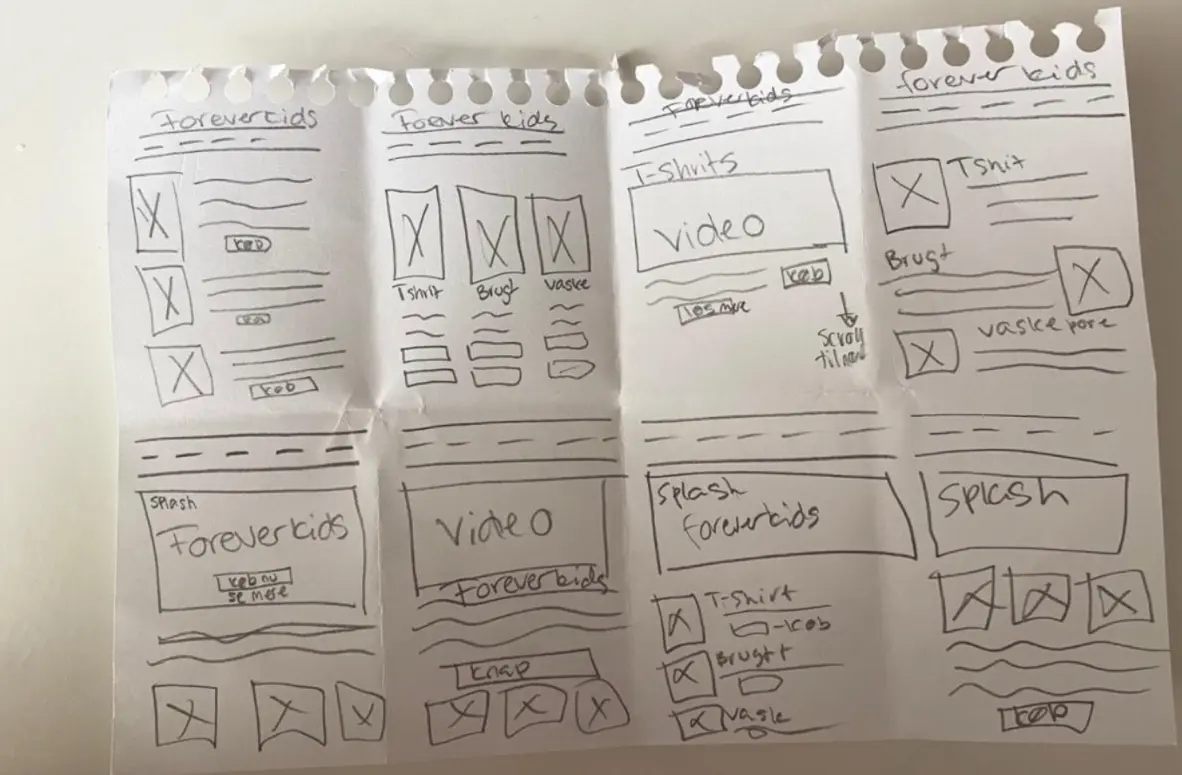 Foreverkids
køb
køb
køb
Foever kids
Tshrit
Brugt
vaske
Foreverkids
T-shrits
video
køb
læs mere
Scroll
forever kids
Tshit
Brugt
vaske pore
Splash
Foreverkids
køb nu
se mere
Video
Foreverkids
knap
Splash
foreverkids
T-shirt
-køb
Brugtt
vask
Splash
køb